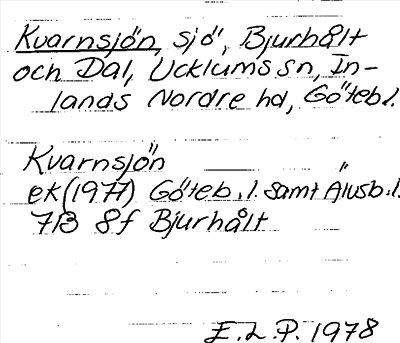 Kvarnsjön, sjö, Bjurhålt
och Dal, Ucklums sn, In-
lands Nordre hd, Göteb.l.
Kvarnsjön
ek (1977) Göteb.l. samt Älvsb.l.
7B 8f Bjurhålt
E.L.P. 1978